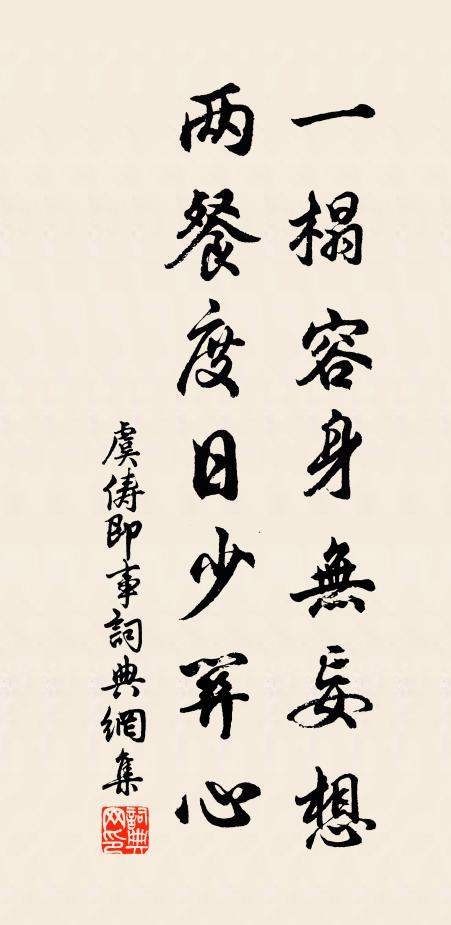 一榻容身無妄想
两餐度日少筭心
虞儔即事詞典網集
詞典
网印